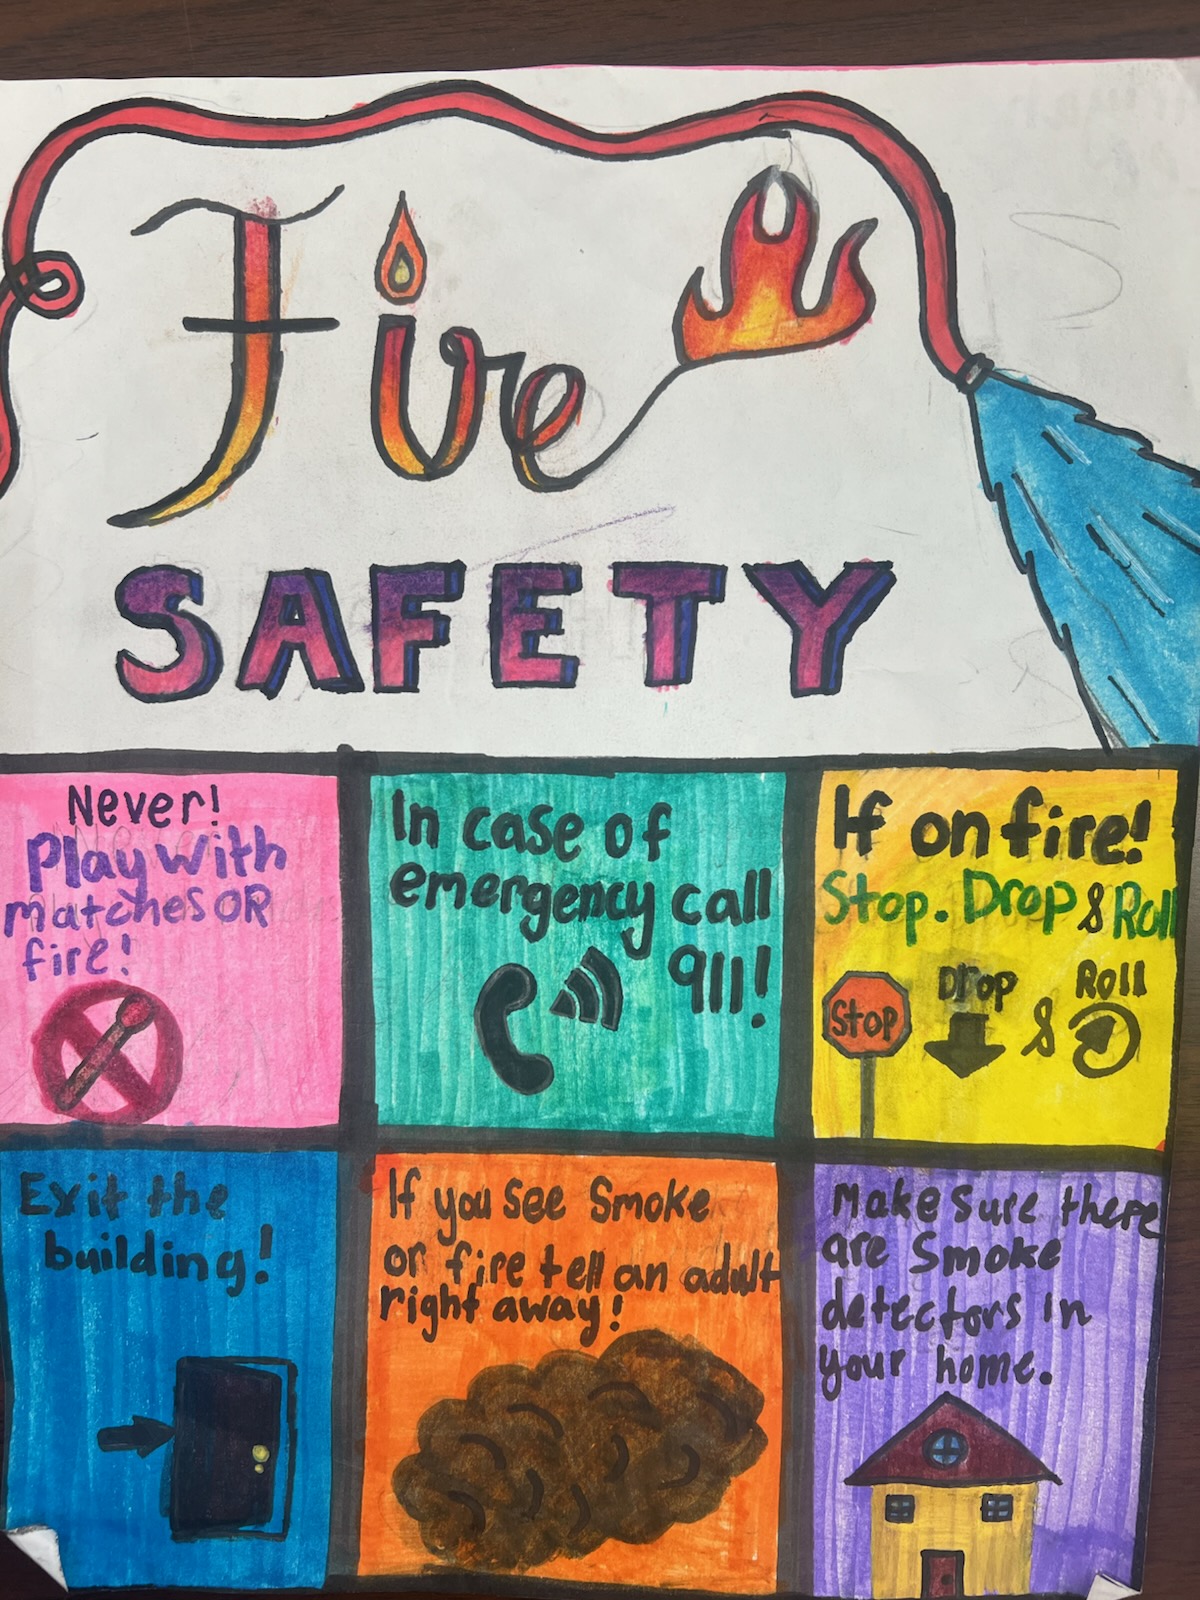 Fire
SAFETY
Never!
Play with
matches OR
fire!
In case of
emergency call
911!
If on fire!
Stop. Drop & Roll
Stop
Drop
&
Roll
Exit the
building!
If you see Smoke
or fire tell an adult
right away!
Make sure there
are Smoke
detectors in
your home.